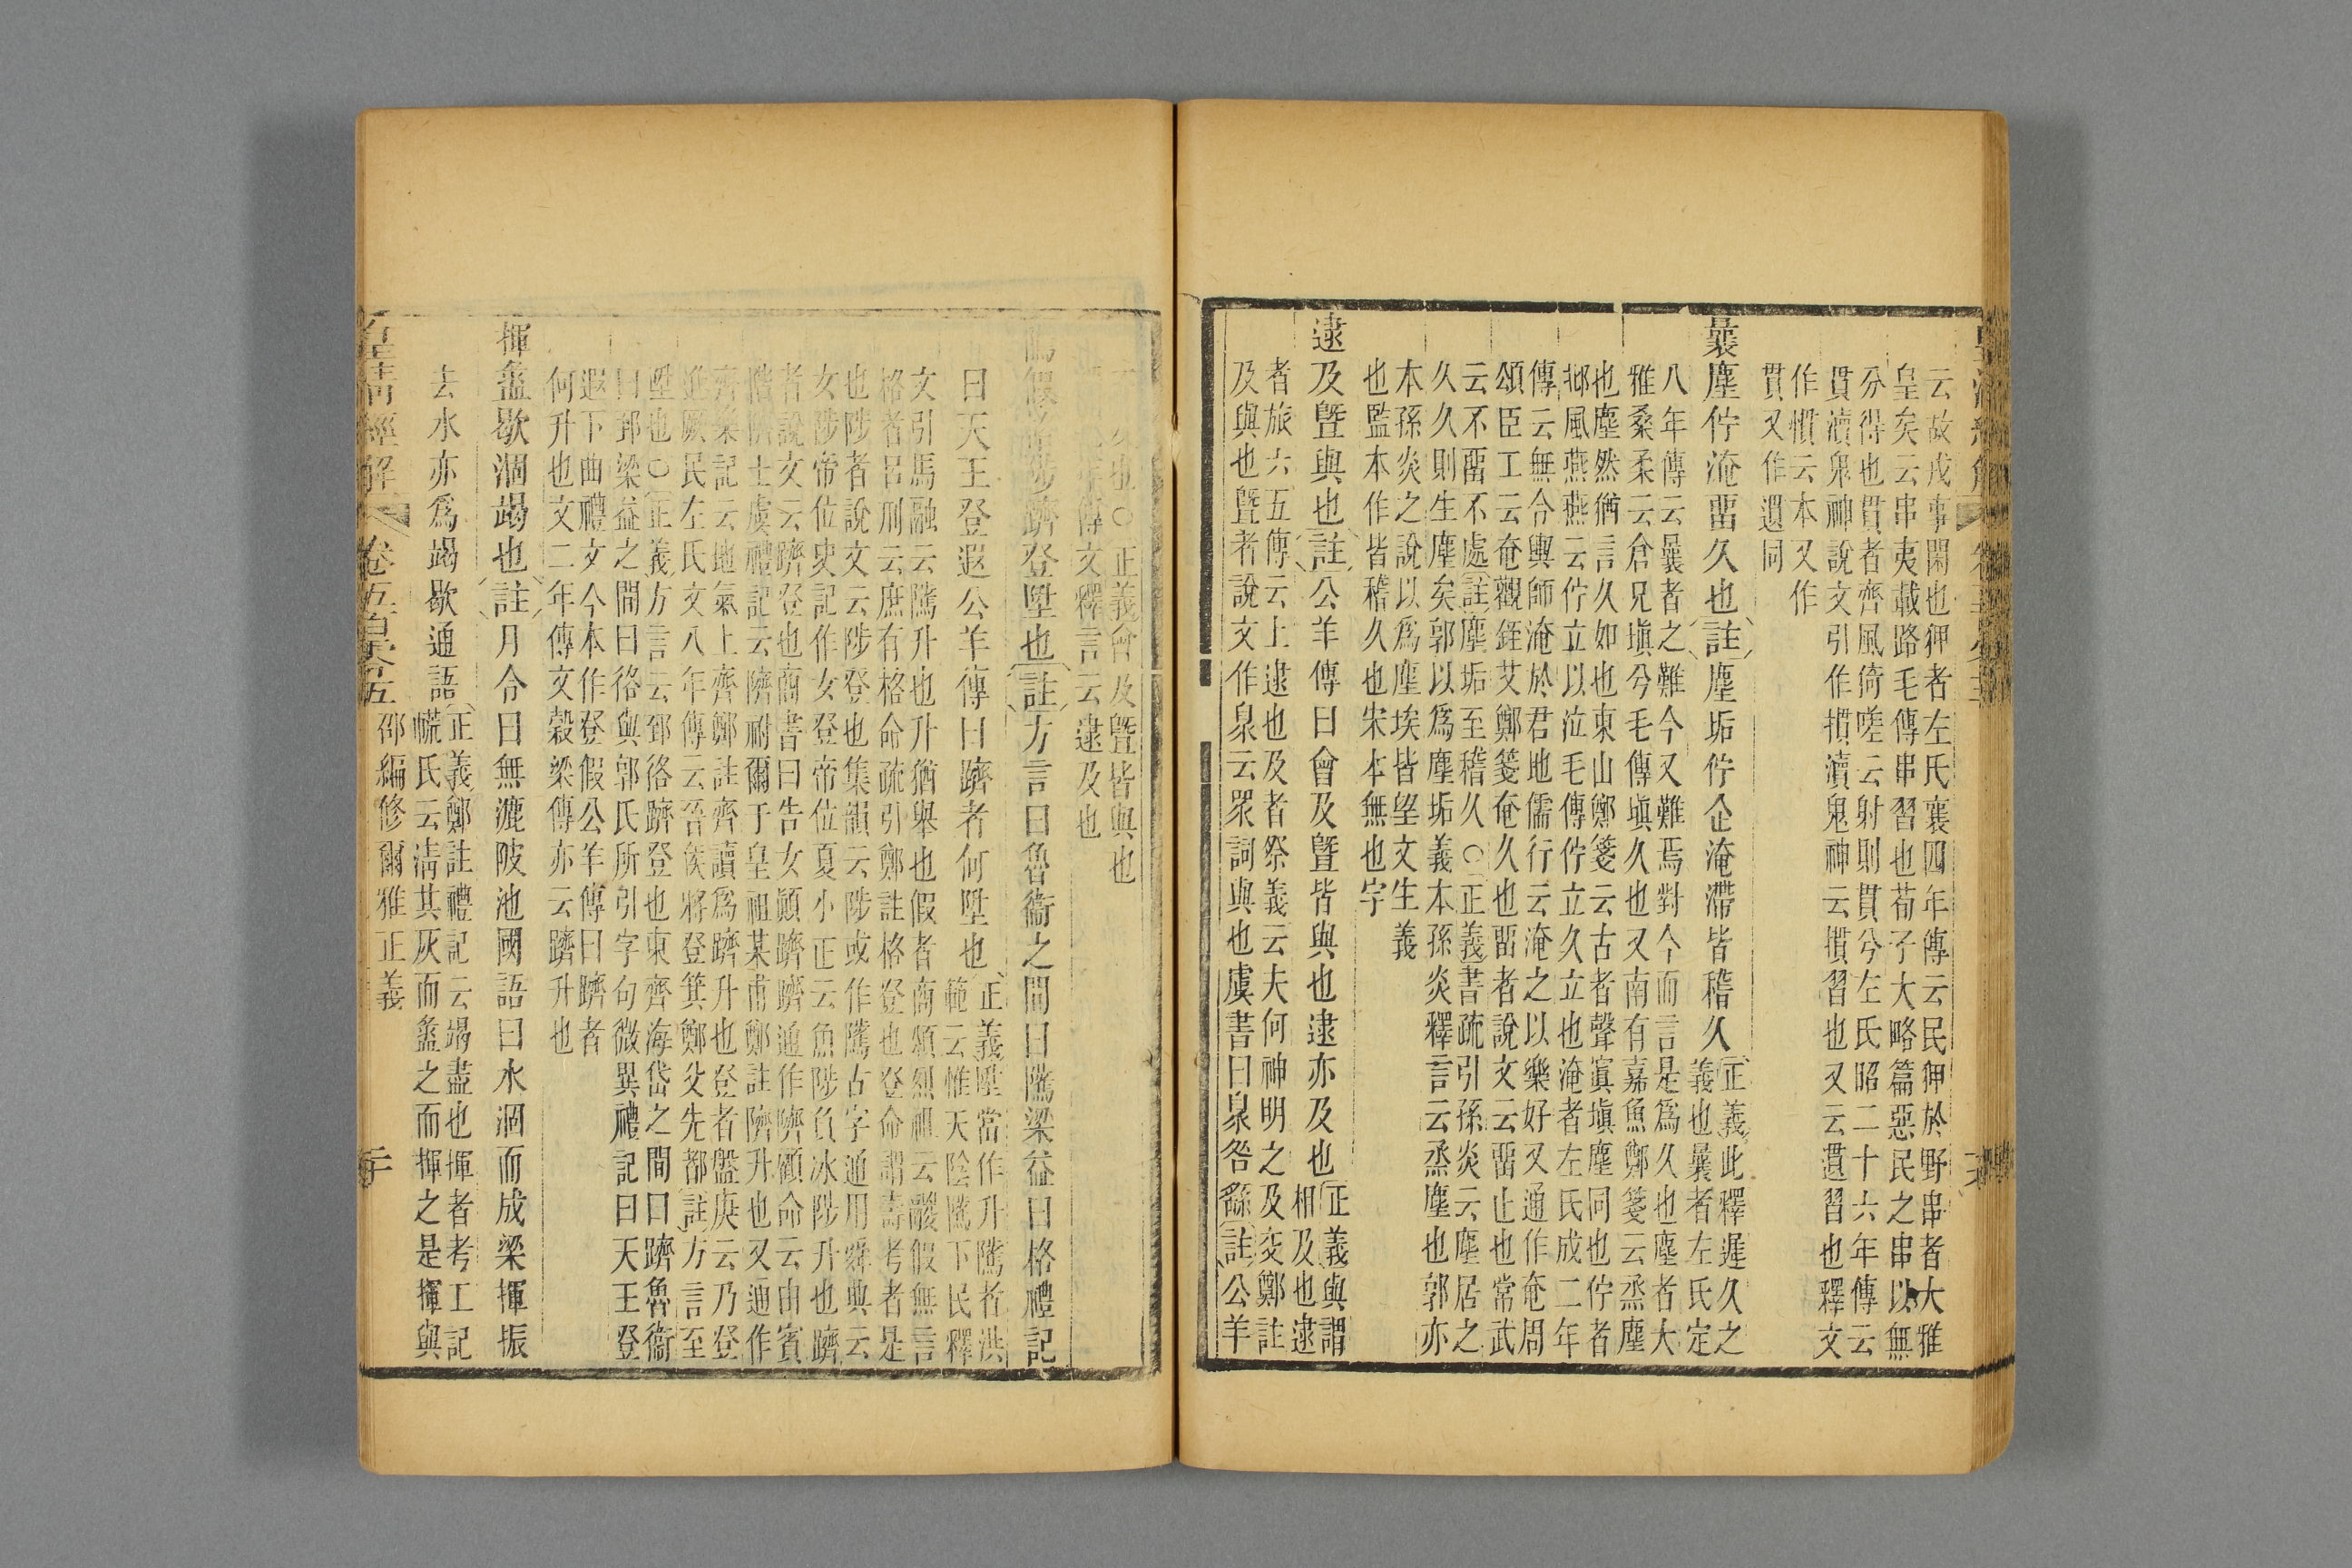 云故戎事閑也狎者左氏襄四年傳云民狎於野串者大雅
皇矣云串夷載路毛傳串習也荀子大略篇惡民之串以無
分得也貫者齊風倚嗟云射則貫兮左氏昭二十六年傳云
貫瀆鬼神說文引作摜瀆鬼神云摜習也又云遺習也釋文
作慣云本又作
貫又作遺同
曩塵佇淹畱久也註塵垢佇企淹滯皆稽久
正義此釋遲久之
義也曩者左氏定
八年傳云曩者之難今又難焉對今而言是爲久也塵者大
雅桑柔云倉兄塡兮毛傳塡久也又南有嘉魚鄭箋云烝塵
也塵然猶言久如也東山鄭箋云古者聲寘塡塵同也佇者
邶風燕燕云佇立以泣毛傳佇立久立也淹者左氏成二年
傳云無令輿師淹於君地儒行云淹之以樂好又通作奄周
頌臣工云奄觀銍艾鄭箋奄久也畱者說文云畱止也常武
云不畱不處註塵垢至稽久○正義書疏引孫炎云塵居之
久久則生塵矣郭以爲塵垢義本孫炎釋言云烝塵也郭亦
本孫炎之說以爲塵埃皆垩文生義
也監本作皆稽久也宋本無也字
逮及曁與也註公羊傳曰會及曁皆與也逮亦及也
正義與謂
相及也逮
者旅六五傳云上逮也及者祭義云夫何神明之及交鄭註
及與也曁者說文作臮云眾詞與也虞書曰臮咎繇註公羊
也○正義會及曁皆與也
傳文釋言云逮及也
陟躋登陞也註方言曰魯衞之間曰隲梁益曰格禮記
曰天王登遐公羊傳曰躋者何陞也
正義陞當作升隲者洪
範云惟天陰隲下民釋
文引馬融云隲升也升猶舉也假者商頌烈祖云鬷假無言
格者呂刑云庶有格命疏引鄭註格登也登命謂壽考者是
也陟者說文云陟登也集韻云陟或作隲古字通用舜典云
女陟帝位史記作女登帝位夏小正云魚陟負冰陟升也躋
者說文云躋登也商書曰告女顚躋躋通作隮顧命云由賓
階隮士虞禮記云隮祔爾于皇祖某甫鄭註隮升也又通作
齊樂記云地氣上齊鄭註齊讀爲躋升也登者盤庚云乃登
進厥民左氏文八年傳云晉侯將登箕鄭父先都註方言至
陞也○正義方言云郅㣟躋登也東齊海岱之間曰躋魯衞
曰郅梁益之間曰㣟與郭氏所引字句微異禮記曰天王登
遐下曲禮文今本作登假公羊傳曰躋者
何升也文二年傳文穀梁傳亦云躋升也
揮盝歇涸竭也註月令曰無漉陂池國語曰水涸而成梁揮振
去水亦爲竭歇通語
正義鄭註禮記云竭盡也揮者考工記
㡛氏云淸其灰而盝之而揮之是揮與
皇淸經解
卷五百今五
邵編修爾雅正義